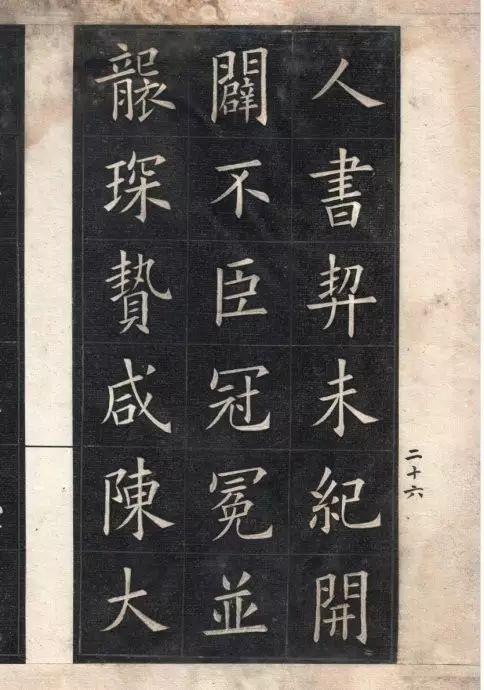 人書契未紀開
闢不臣冠冕並
襲琛贄咸陳大
二十六